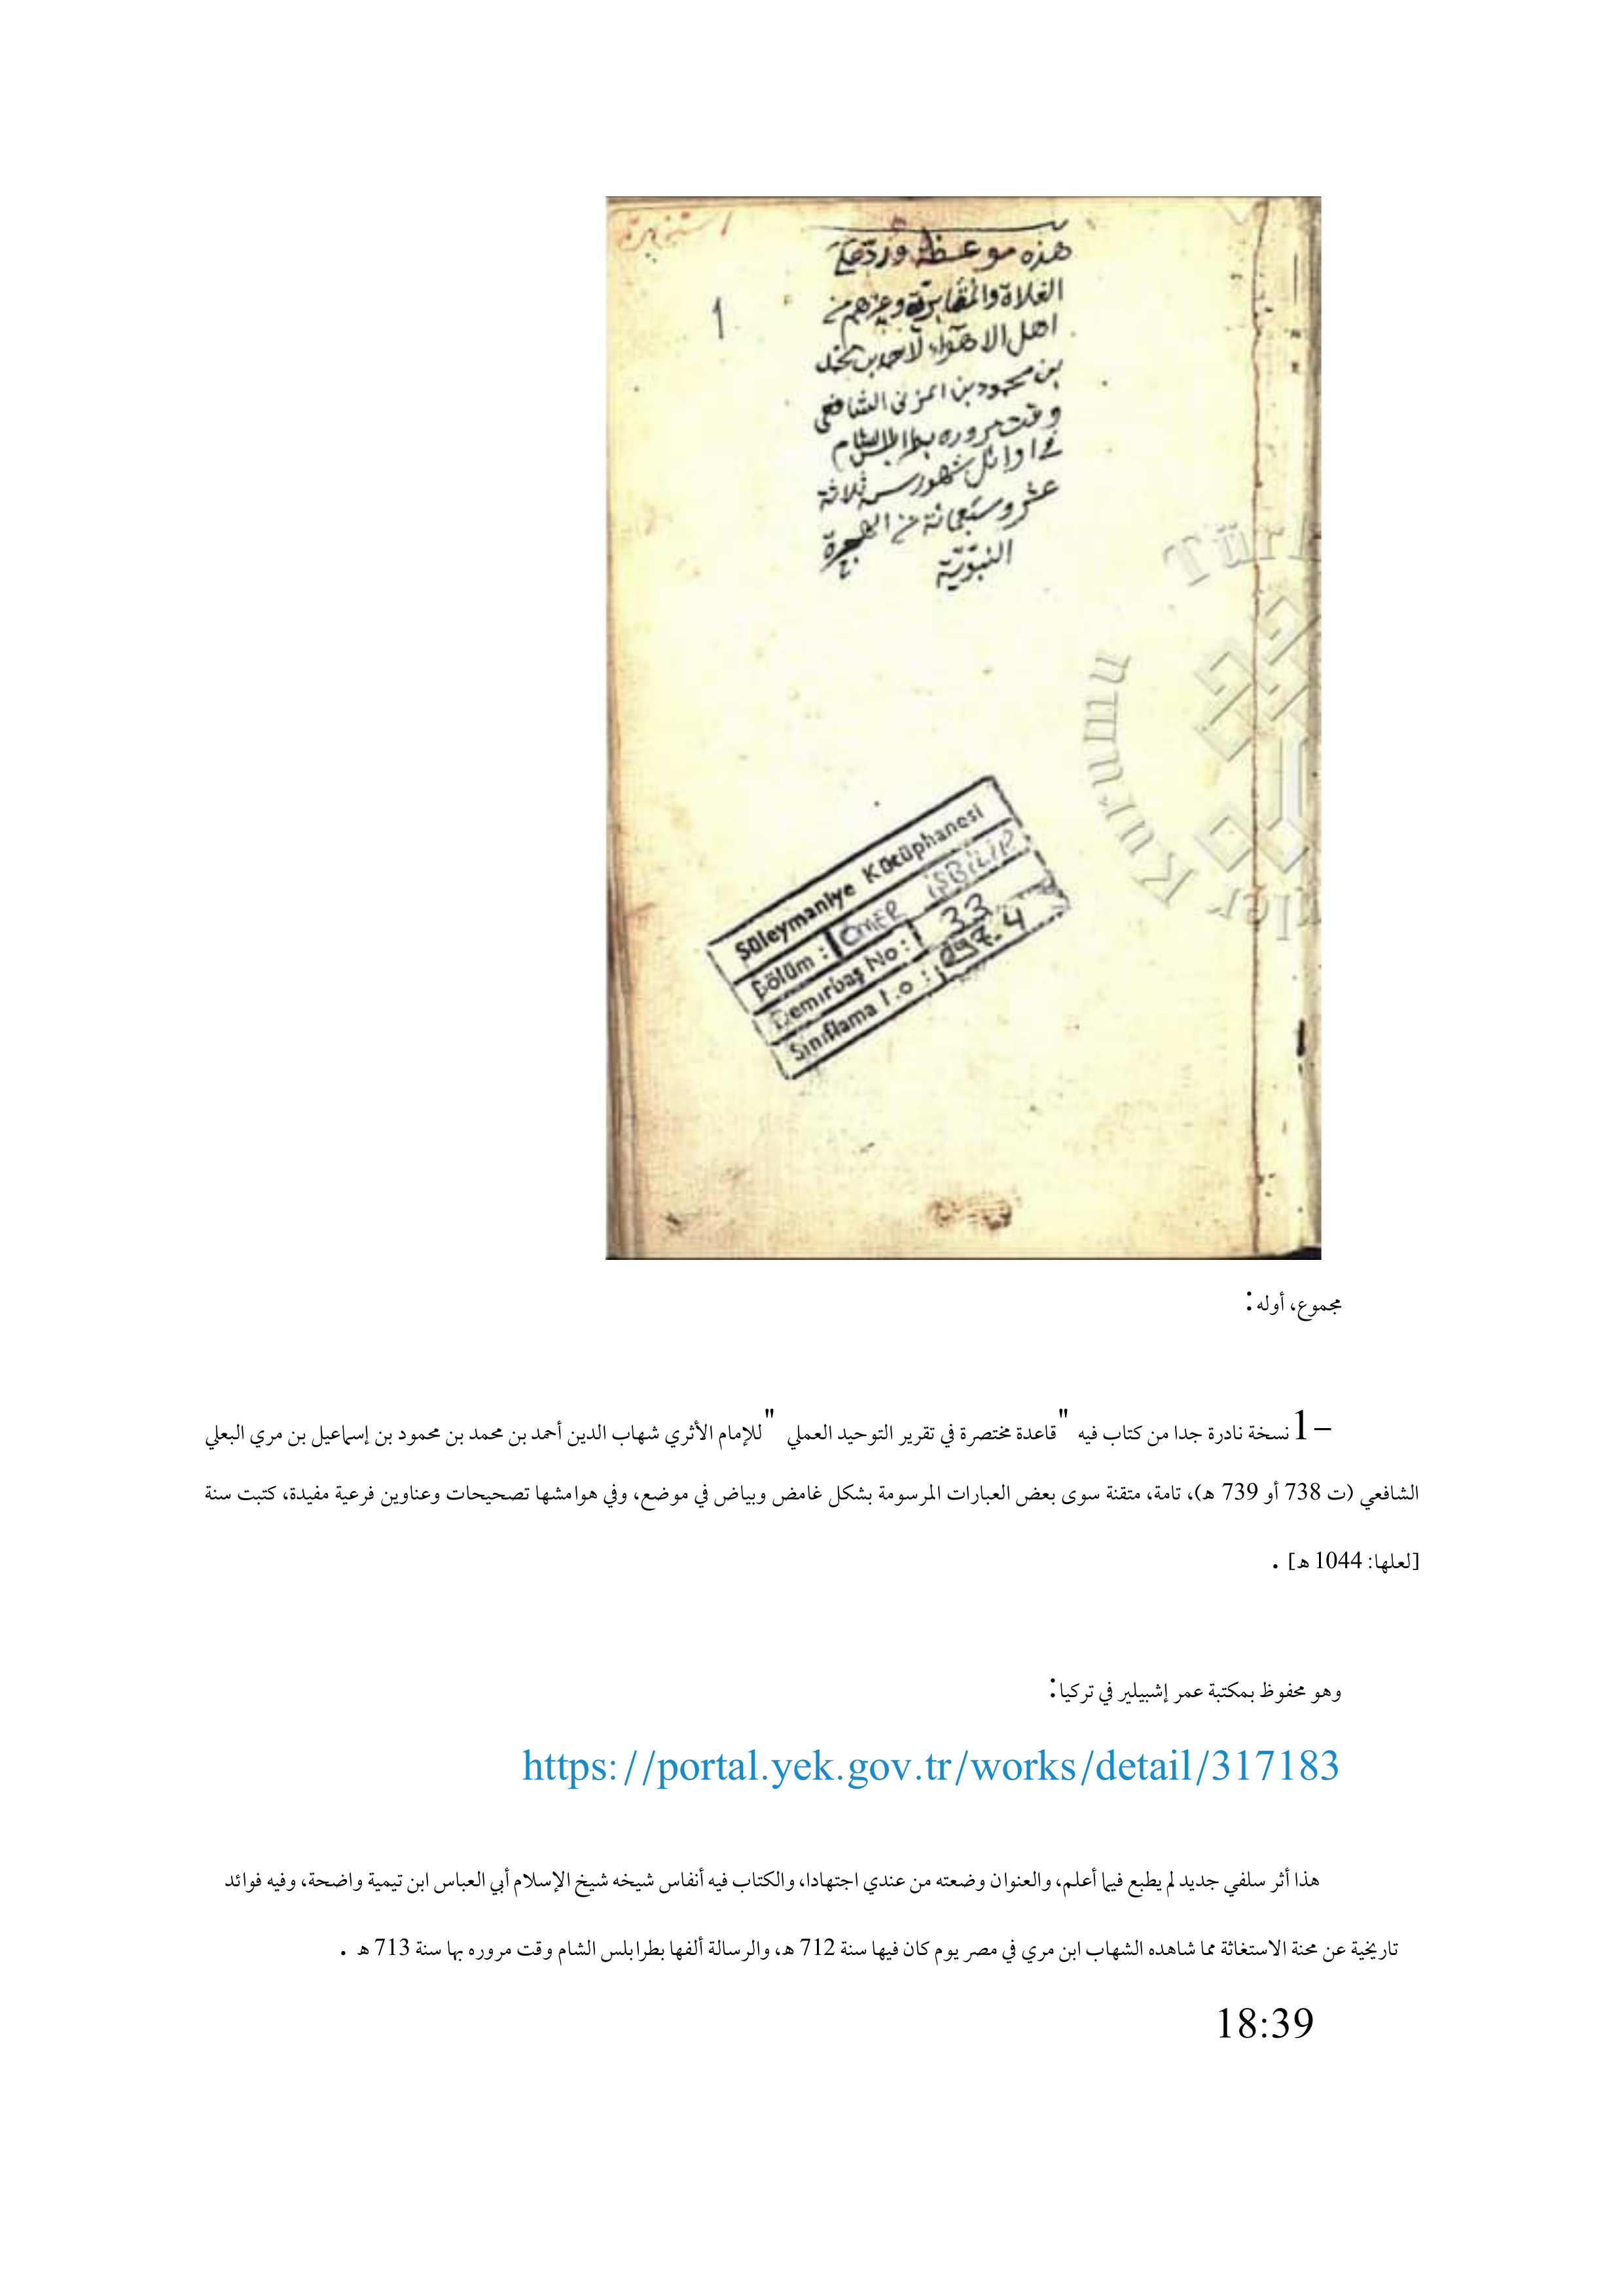 هذه موعظة ورد على
الغلاة والمقابرية وغيرهم من
اهل الاهوآء لاحمد بن محمد
بن محمود بن المزنى الشافعى
وقت مروره بطرابلس الشام
فى اوائل شهور سنة ثلاثة
عشر وسبعمائة من الهجرة
النبوّيّة
1
Süleymaniye Kütüphanesi
Bölüm : ÖMER İŞBİLİR
Demirbaş No: 33
Sınıflama 1.0 : 297.4
Kurumu
مجموع، أوله:
1– نسخة نادرة جدا من كتاب فيه "قاعدة مختصرة في تقرير التوحيد العملي" للإمام الأثري شهاب الدين أحمد بن محمد بن محمود بن إسماعيل بن مري البعلي
الشافعي (ت 738 أو 739 هـ)، تامة، متقنة سوى بعض العبارات المرسومة بشكل غامض وبياض في موضع، وفي هوامشها تصحيحات وعناوين فرعية مفيدة، كتبت سنة
[لعلها: 1044 هـ] .
وهو محفوظ بمكتبة عمر إشبيلير في تركيا:
https://portal.yek.gov.tr/works/detail/317183
هذا أثر سلفي جديد لم يطبع فيما أعلم، والعنوان وضعته من عندي اجتهادا، والكتاب فيه أنفاس شيخه شيخ الإسلام أبي العباس ابن تيمية واضحة، وفيه فوائد
تاريخية عن محنة الاستغاثة مما شاهده الشهاب ابن مري في مصر يوم كان فيها سنة 712 هـ، والرسالة ألفها بطرابلس الشام وقت مروره بها سنة 713 هـ .
18:39